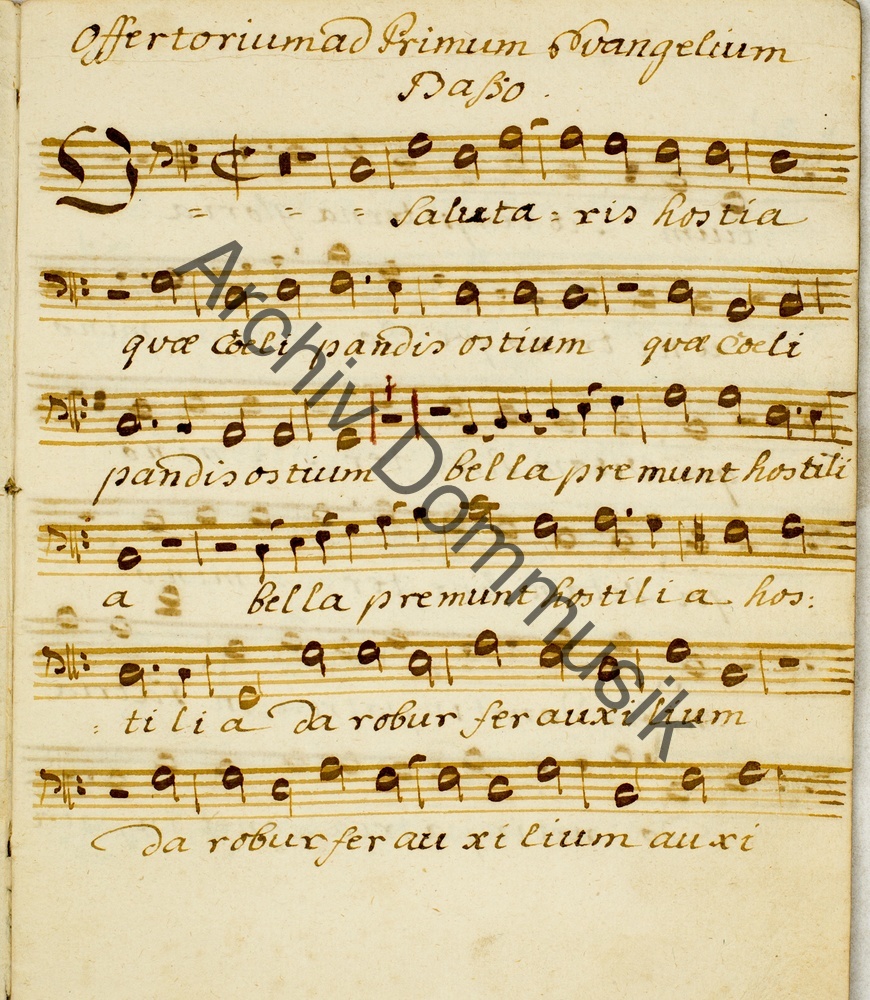 Offertorium ad Primum Evangelium
Baßo.
O = = = Saluta = ris hostia
quæ Coeli pandis ostium quæ Coeli
pandis ostium bella premunt hostili
a bella premunt hostilia hos:
: tilia Da robur fer auxilium
Da robur fer auxilium auxi
Archiv Dommusik